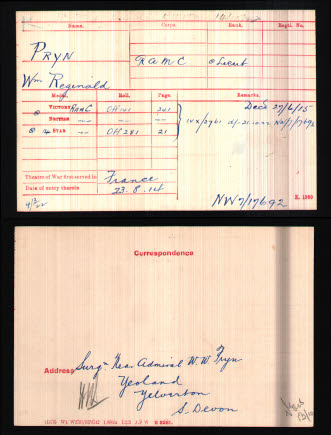 Name. Corps. Rank. Regtl. No.
PRYN R A M C Lieut
Wm Reginald
Medal. Roll. Page. Remarks.
VICTORY RAMC OH 141 241 Dec'd 27/6/15
BRITISH -"- -"-
STAR -"- OH 2B1 21
Theatre of War first served in France
Date of entry therein 23.8.14
NW7/17692 K. 1380
Correspondence
Address Surg- Rear Admiral W. W. Pryn
Yeoland
Yelverton
S. Devon